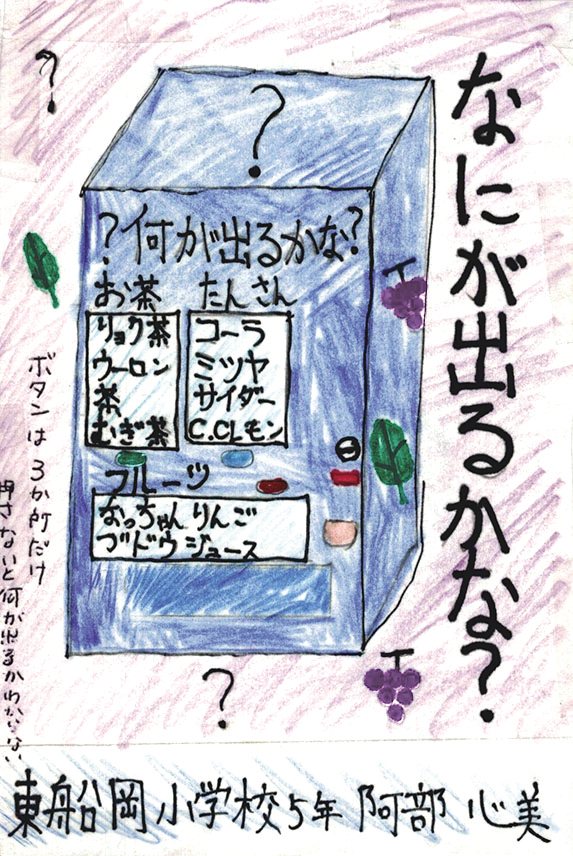 なにが出るかな?
?
?
?何が出るかな?
お茶
たんさん
リョク茶
ウーロン
茶
むぎ茶
コーラ
ミツヤ
サイダー
C.CLモン
フルーツ
なっちゃん りんご
ブドウジュース
ボタンは3か所だけ
押さないと何が出るかわからない
?
東船岡小学校5年 阿部 心美